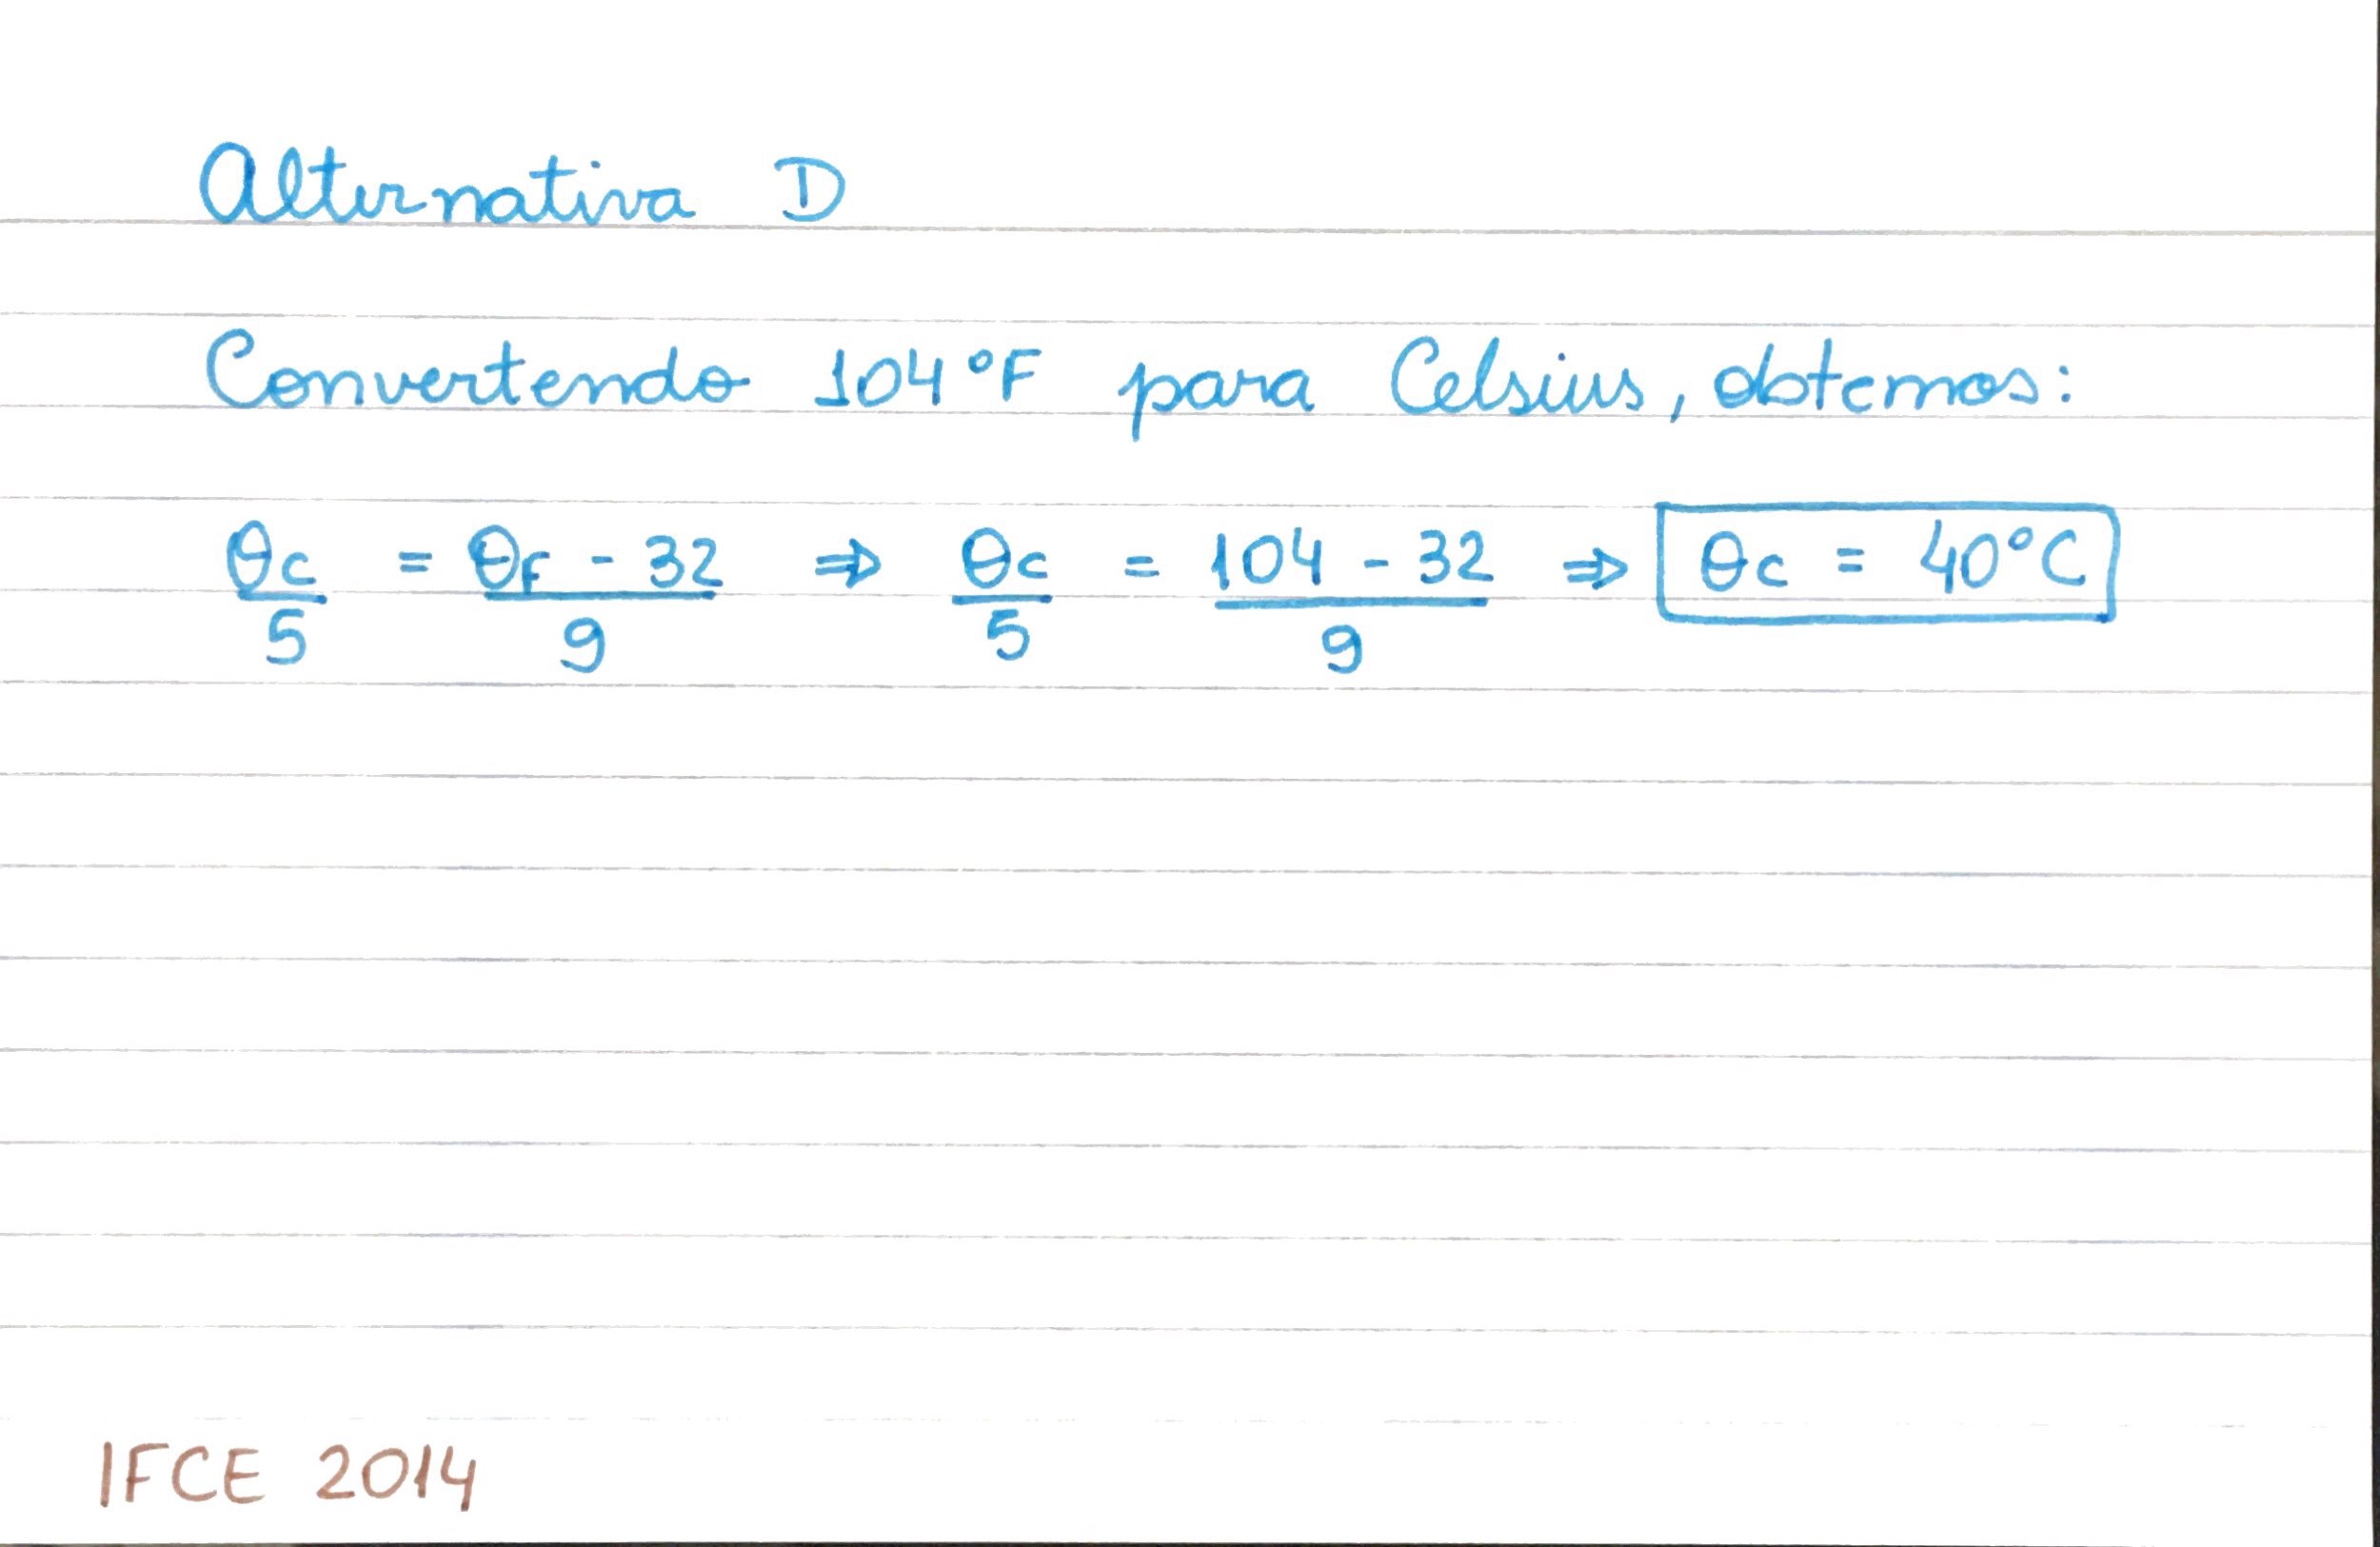 Alternativa D
Convertendo 104°F para Celsius, obtemos:
θc/5 = θF - 32/9 ⇒ θc/5 = 104 - 32/9 ⇒ θc = 40°C
IFCE 2014